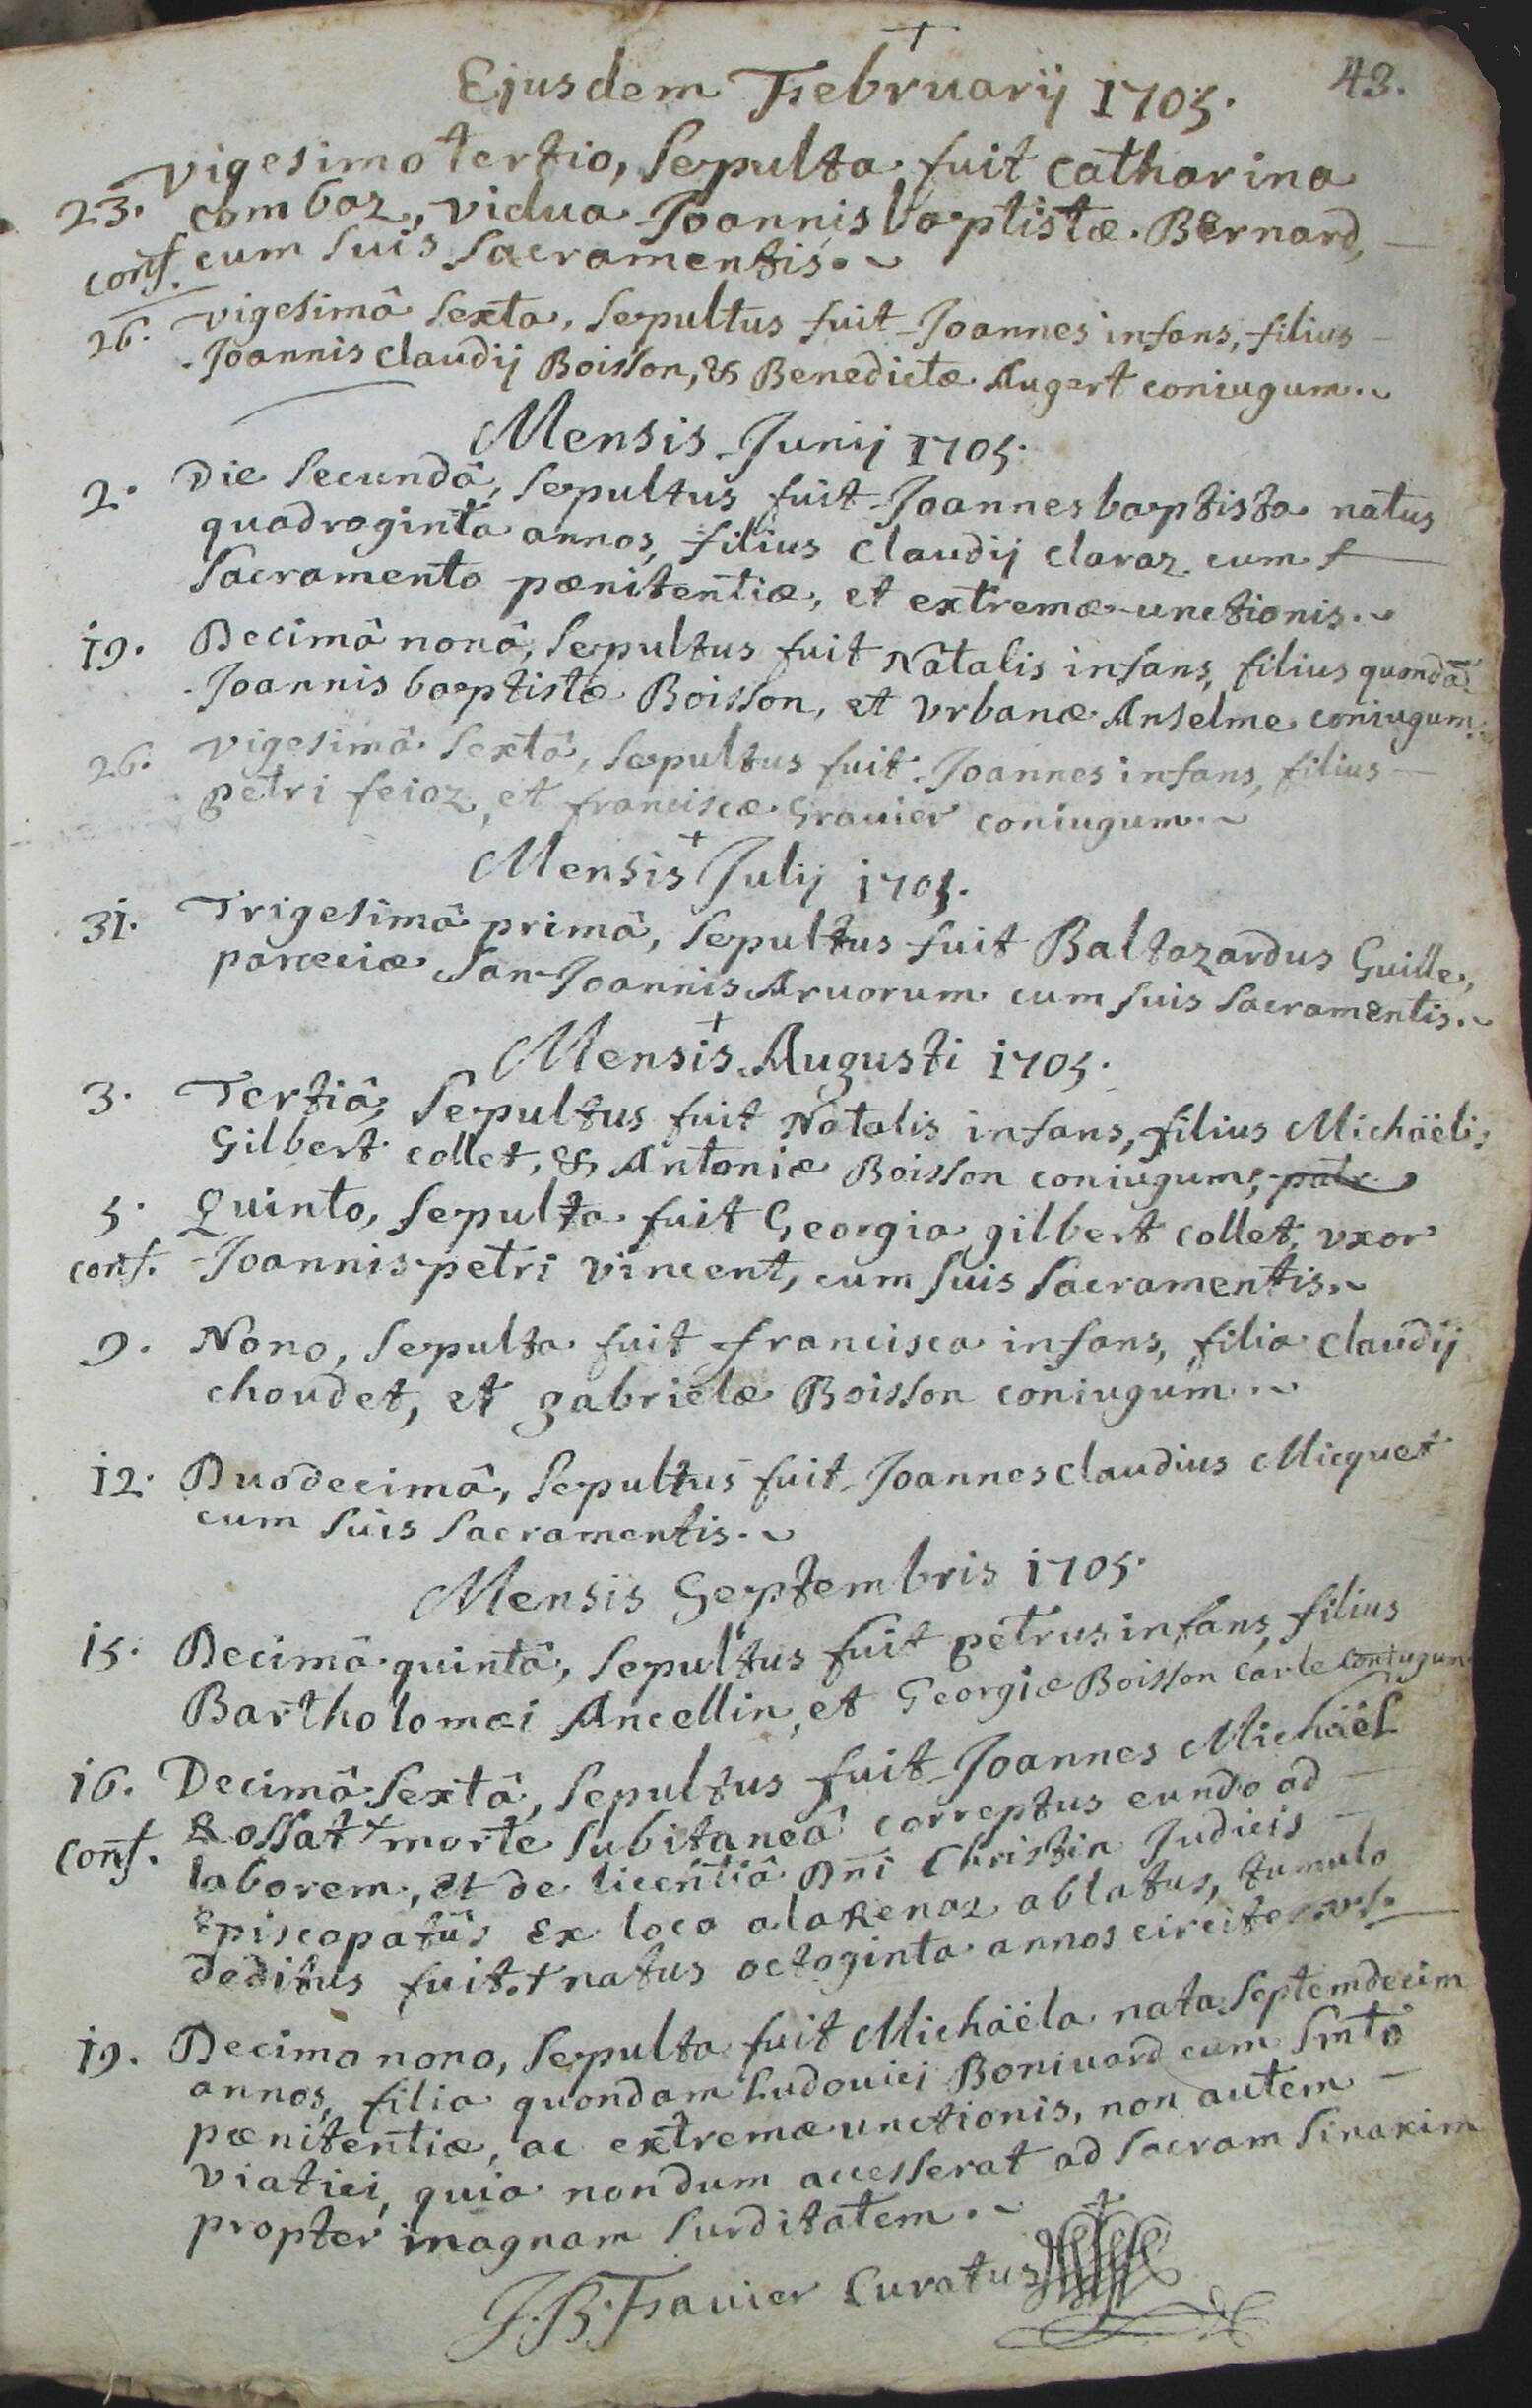 43.
Ejusdem Februarij 1705.
23. vigesimo tertio, sepulta fuit catharina
comboz, vidua Joannis baptistæ Bernard,
conf. cum suis sacramentis.
26. vigesimâ sexta, sepultus fuit Joannes infans, filius
Joannis claudij Boisson, & Benedictæ Augert coniugum.
Mensis Junij 1705.
2. Die secundâ, sepultus fuit Joannes baptista natus
quadraginta annos, filius claudij claraz cum
sacramento pænitentiæ, et extremæ-unctionis.
19. Decimâ nonâ, sepultus fuit Natalis infans, filius quondā
Joannis baptistæ Boisson, et vrbanæ Anselme coniugum.
26. vigesimâ sextâ, sepultus fuit Joannes infans, filius
petri feiaz, et franciscæ Grauier coniugum.
Mensis Julij 1705.
31. Trigesimâ primâ, sepultus fuit Baltazardus Guille,
parœciæ San-Joannis Aruorum cum suis sacramentis.
Mensis Augusti 1705.
3. Tertiâ, sepultus fuit Natalis infans, filius Michäelis
Gilbert collet, & Antoniæ Boisson coniugum,
5. Quinto, sepulta fuit Georgia gilbert collet, vxor
conf. Joannis petri vincent, cum suis sacramentis.
9. Nono, sepulta fuit francisca infans, filia claudij
choudet, et gabrielæ Boisson coniugum.
12. Duodecimâ, sepultus fuit Joannes claudius Micquet
cum suis sacramentis.
Mensis Septembris 1705.
15. Decimâ quintâ, sepultus fuit petrus infans, filius
Bartholomæi Ancellin, et Georgiæ Boisson carle coniugum
16. Decimâ sextâ, sepultus fuit Joannes Michäel
Rossat + morte subitaneâ correptus eundo ad
conf. laborem, et de licentiâ Dni Christin Judicis
Episcopatûs ex loco alarenaz ablatus, tumulo
deditus fuit. + natus octoginta annos circiter.
19. Decimo nono, sepulta fuit Michäela nata septemdecim
annos, filia quondam Ludouici Boniuard cum Smto
pænitentiæ, ac extremæ unctionis, non autem
viatici, quia nondum accesserat ad sacram sinaxim
propter magnam surditatem.
J. B. Fauier Curatus